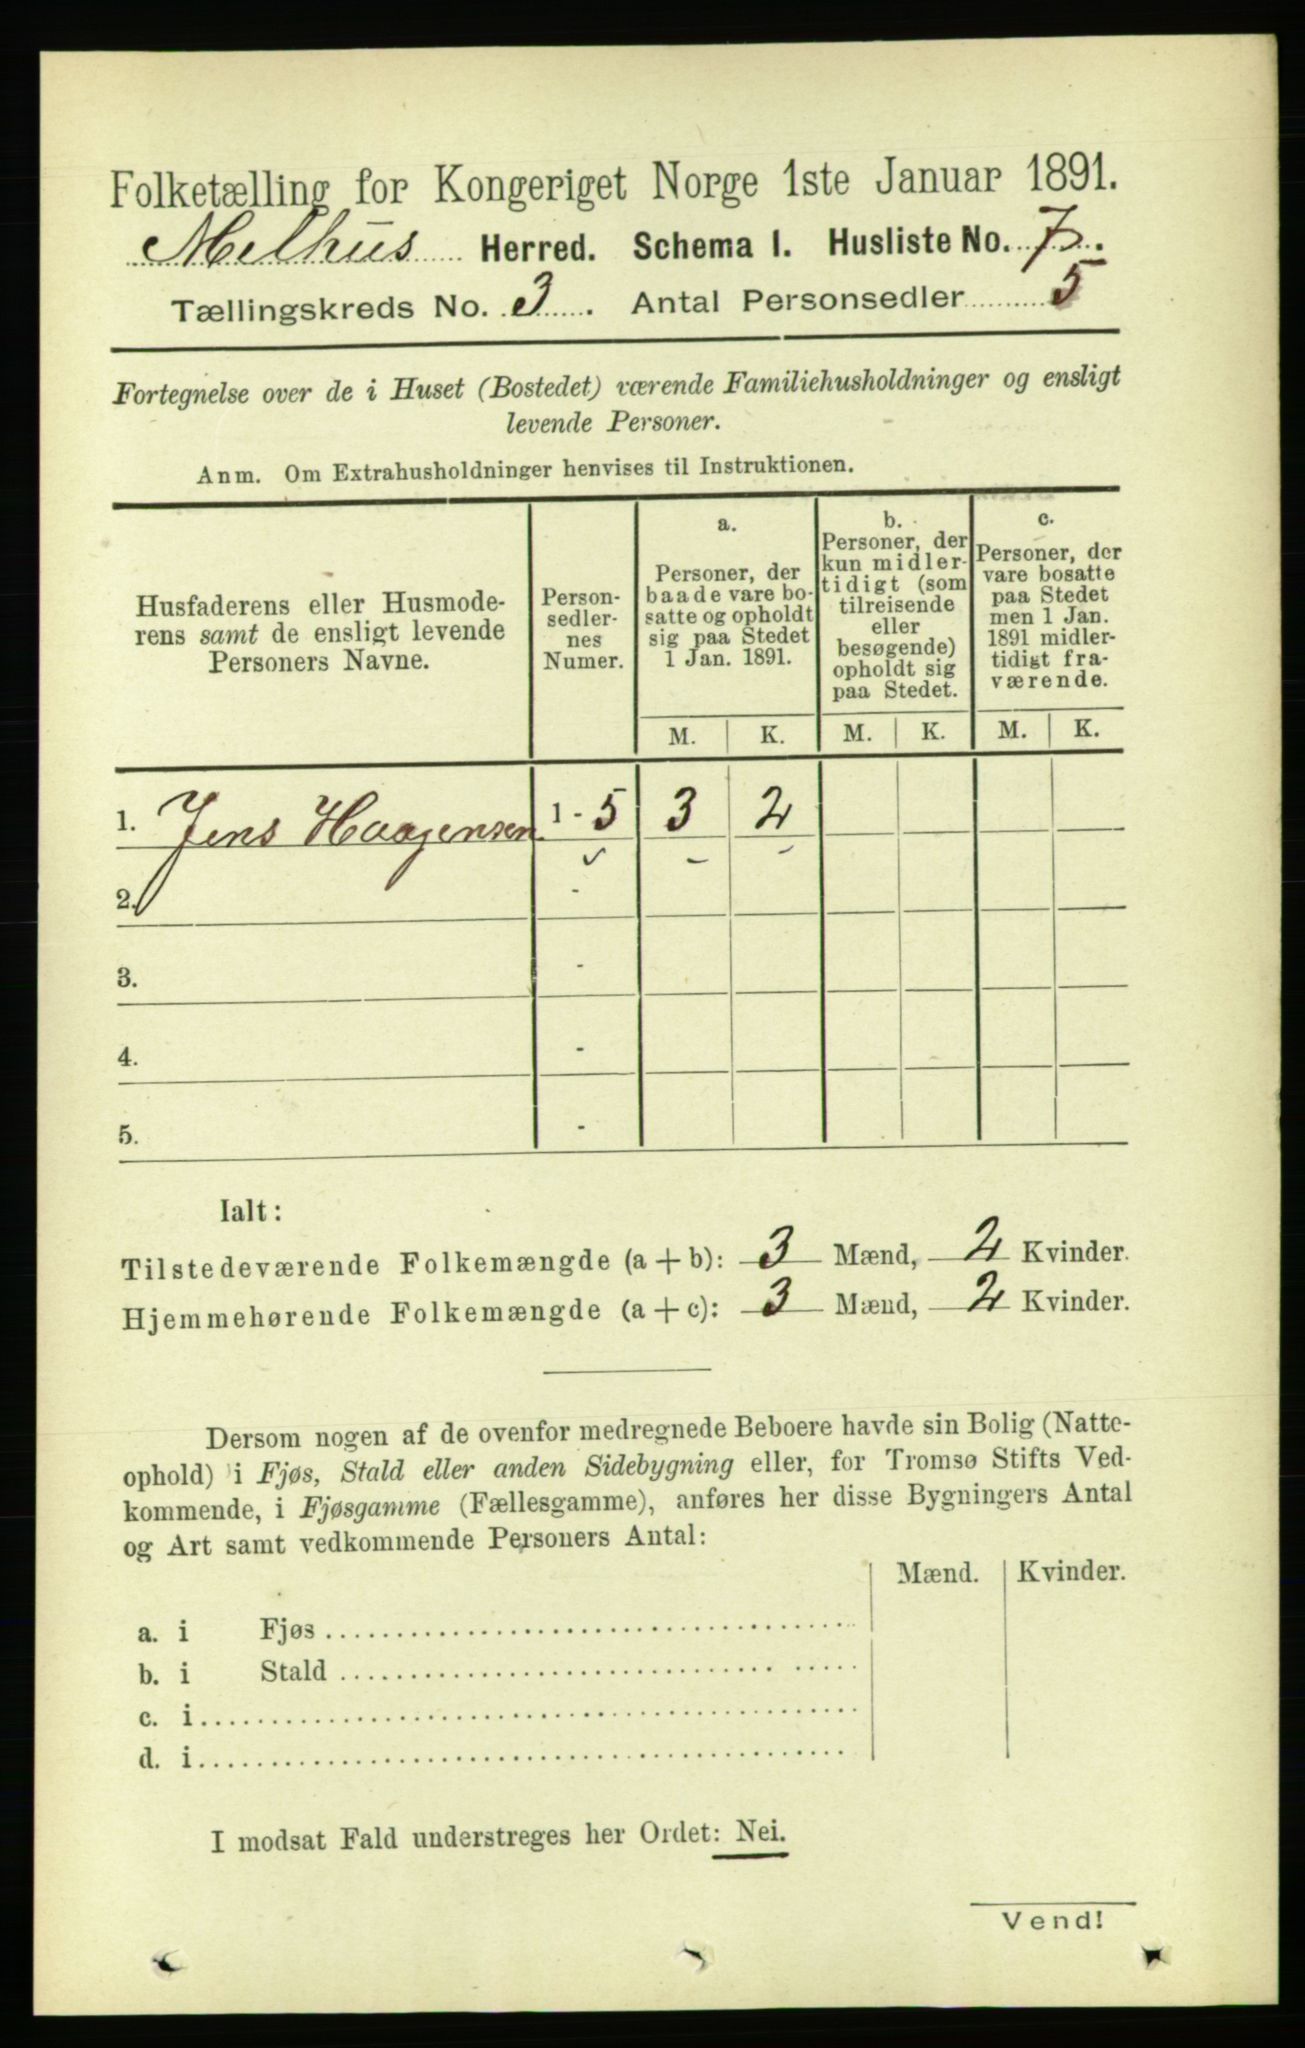 Folketælling for Kongeriget Norge 1ste Januar 1891.
Melhus Herred. Schema I. Husliste No. 7.
Tællingskreds No. 3. Antal Personsedler 5
Fortegnelse over de i Huset (Bostedet) værende Familiehusholdninger og ensligt
levende Personer.
Anm. Om Extrahusholdninger henvises til Instruktionen.
Husfaderens eller Husmode-
rens samt de ensligt levende
Personers Navne.
Person-
sedler-
nes
Numer.
a.
Personer, der
baade vare bo-
satte og opholdt
sig paa Stedet
1 Jan. 1891.
b.
Personer, der
kun midler-
tidigt (som
tilreisende
eller
besøgende)
opholdt sig
paa Stedet.
c.
Personer, der
vare bosatte
paa Stedet
men 1 Jan.
1891 midler-
tidigt fra-
værende.
M. K. M. K. M. K.
1. Jens Haagensen 1 - 5 3 2
2. -
3. -
4. -
5. -
Ialt:
Tilstedeværende Folkemængde (a + b): 3 Mænd, 2 Kvinder.
Hjemmehørende Folkemængde (a + c): 3 Mænd, 2 Kvinder.
Dersom nogen af de ovenfor medregnede Beboere havde sin Bolig (Natte-
ophold) i Fjøs, Stald eller anden Sidebygning eller, for Tromsø Stifts Ved-
kommende, i Fjøsgamme (Fællesgamme), anføres her disse Bygningers Antal
og Art samt vedkommende Personers Antal:
Mænd. Kvinder.
a. i Fjøs
b. i Stald
c. i
d. i
I modsat Fald understreges her Ordet: Nei.
Vend!